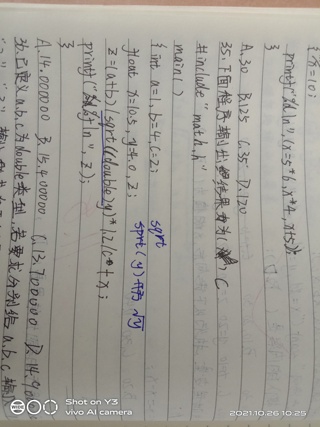 { x=10;
printf("%d\n",(x=5*6,x*4,x+5));
}
A.30 B.125 C.35 D.120
35.下面程序输出的结果为( ) C
#include "math.h"
main()
{ int a=1,b=4,c=2;
sqrt
float x=10.5,y=4.0,z;
sqrt(y)开为√y
z=(a+b)/sqrt((double)y)*1.2/c+x;
printf("%f\n",z);
}
A.14.000000 B.15.400000 C.13.700000 D.14.9
36.已定义a,b,c为double类型,若要求分别给a,b,c输
Shot on Y3
vivo AI camera
2021.10.26 10:25